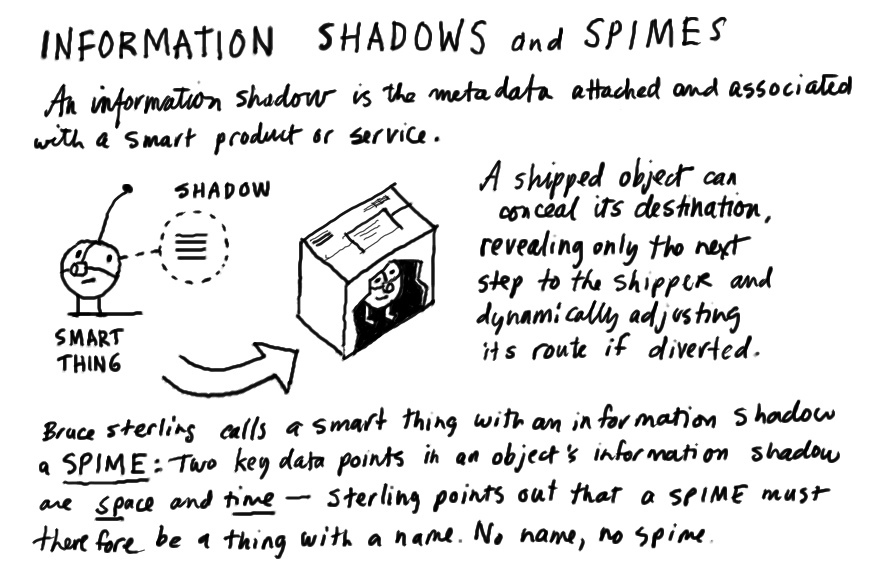 INFORMATION SHADOWS and SPIMES
An information shadow is the metadata attached and associated
with a smart product or service.
SHADOW
SMART
THING
A shipped object can
conceal its destination,
revealing only the next
step to the shipper and
dynamically adjusting
its route if diverted.
Bruce Sterling calls a smart thing with an information shadow
a SPIME: Two key data points in an object's information shadow
are space and time — Sterling points out that a SPIME must
therefore be a thing with a name. No name, no spime.